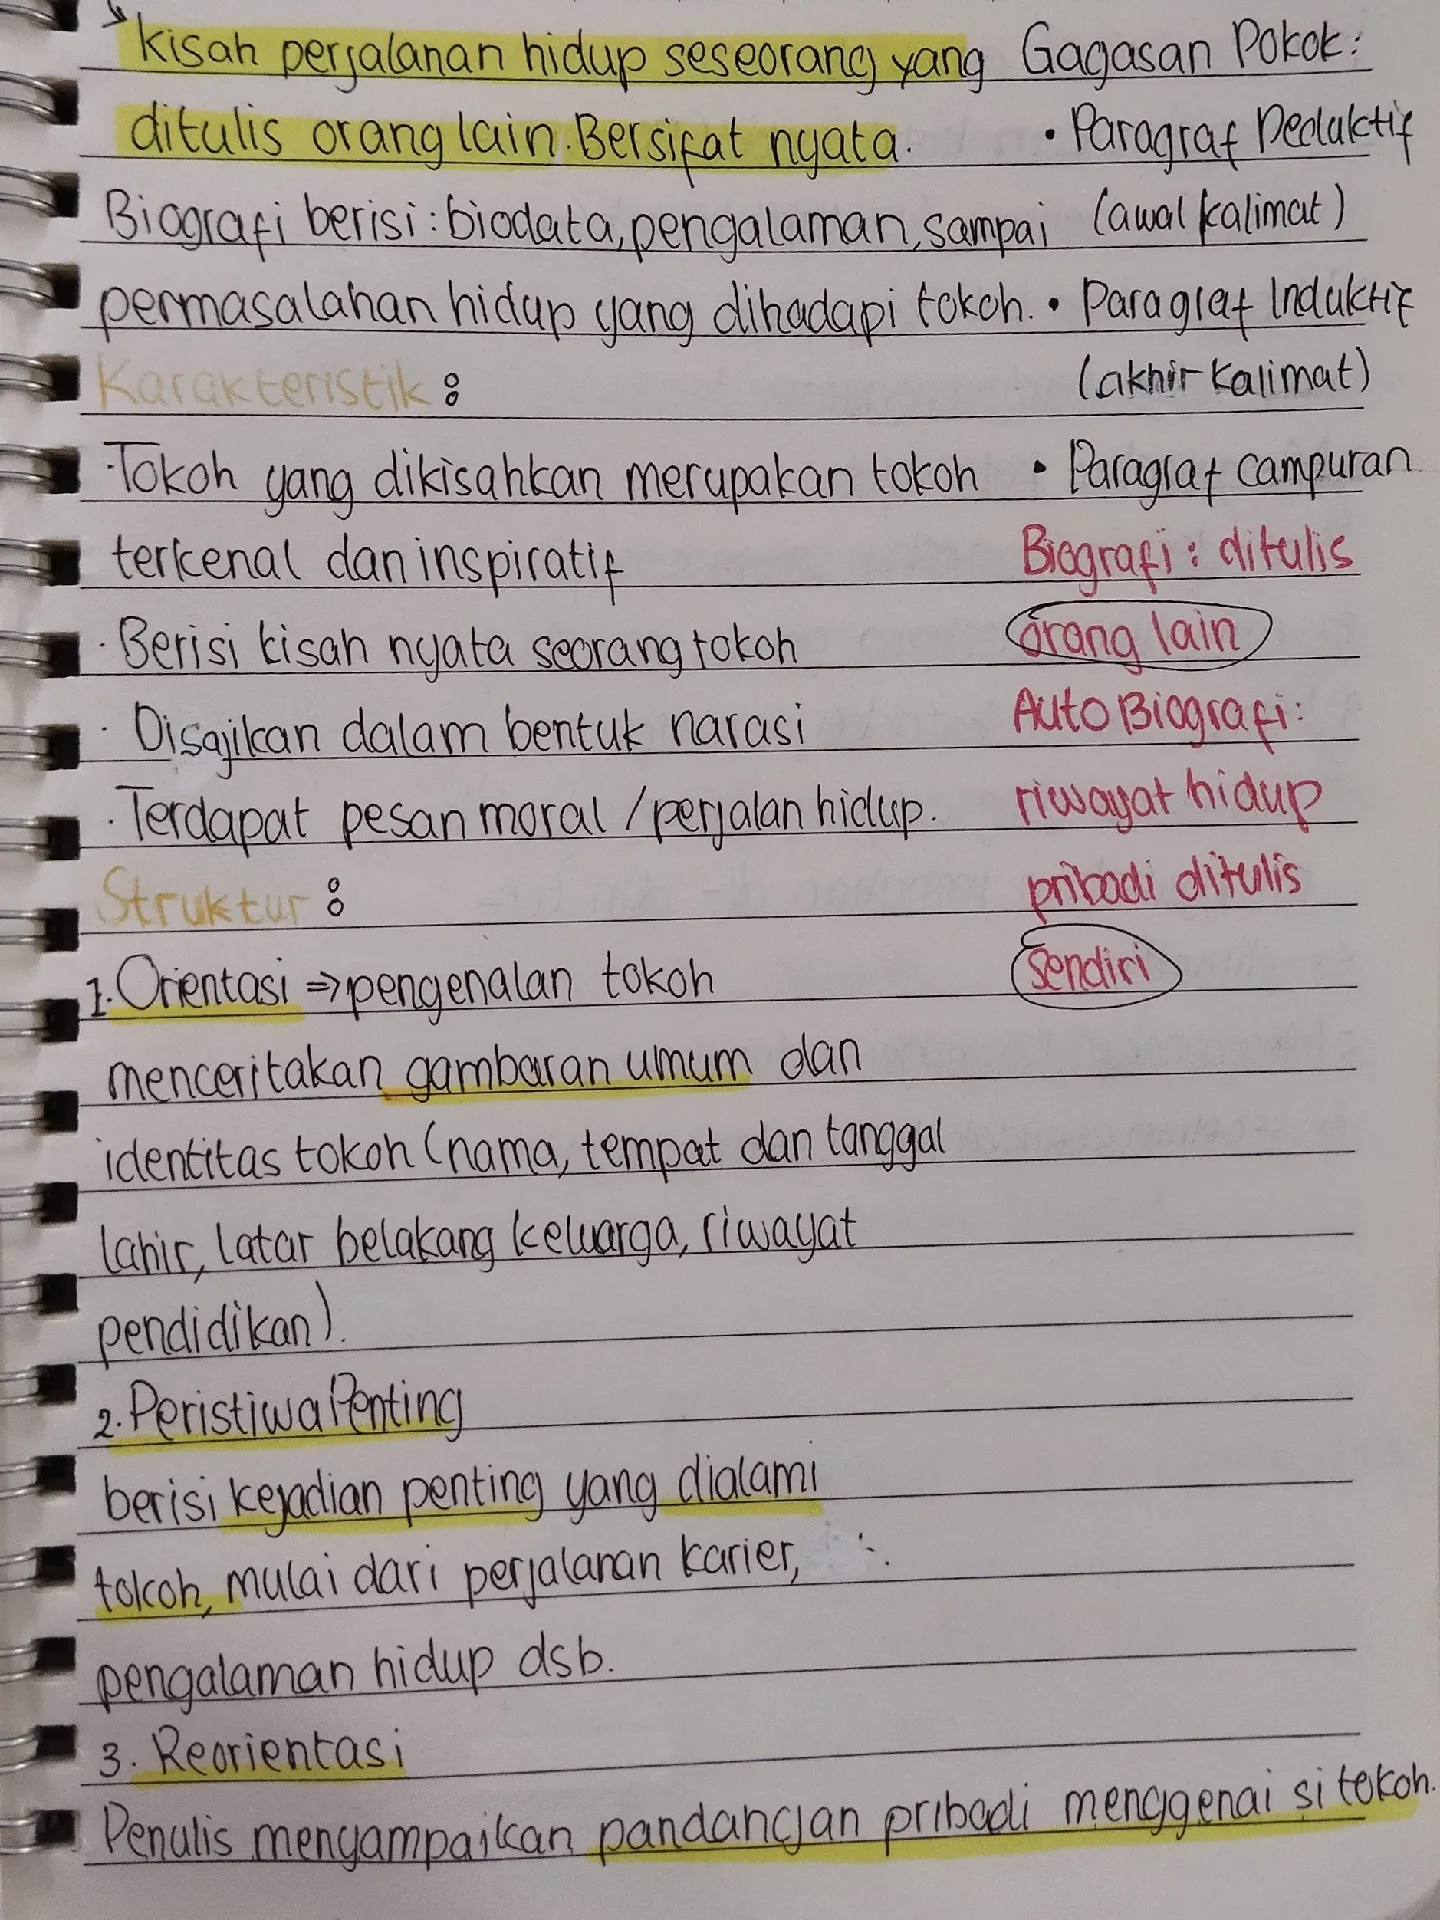 kisah perjalanan hidup seseorang yang
ditulis orang lain. Bersifat nyata.
Biografi berisi : biodata, pengalaman, sampai
permasalahan hidup yang dihadapi tokoh.
Karakteristik :
·Tokoh yang dikisahkan merupakan tokoh
terkenal dan inspiratif
· Berisi kisah nyata seorang tokoh
· Disajikan dalam bentuk narasi
· Terdapat pesan moral / perjalan hidup.
Struktur :
1. Orientasi ⇒ pengenalan tokoh
menceritakan gambaran umum dan
identitas tokoh (nama, tempat dan tanggal
lahir, latar belakang keluarga, riwayat
pendidikan).
2. Peristiwa Penting
berisi kejadian penting yang dialami
tokoh, mulai dari perjalanan karier,
pengalaman hidup dsb.
3. Reorientasi
Penulis menyampaikan pandangan pribadi menggenai si tokoh.
Gagasan Pokok :
• Paragraf Deduktif
(awal kalimat)
• Paragraf Induktif
(akhir kalimat)
• Paragraf campuran
Biografi : ditulis
orang lain
Auto Biografi :
riwayat hidup
pribadi ditulis
Sendiri